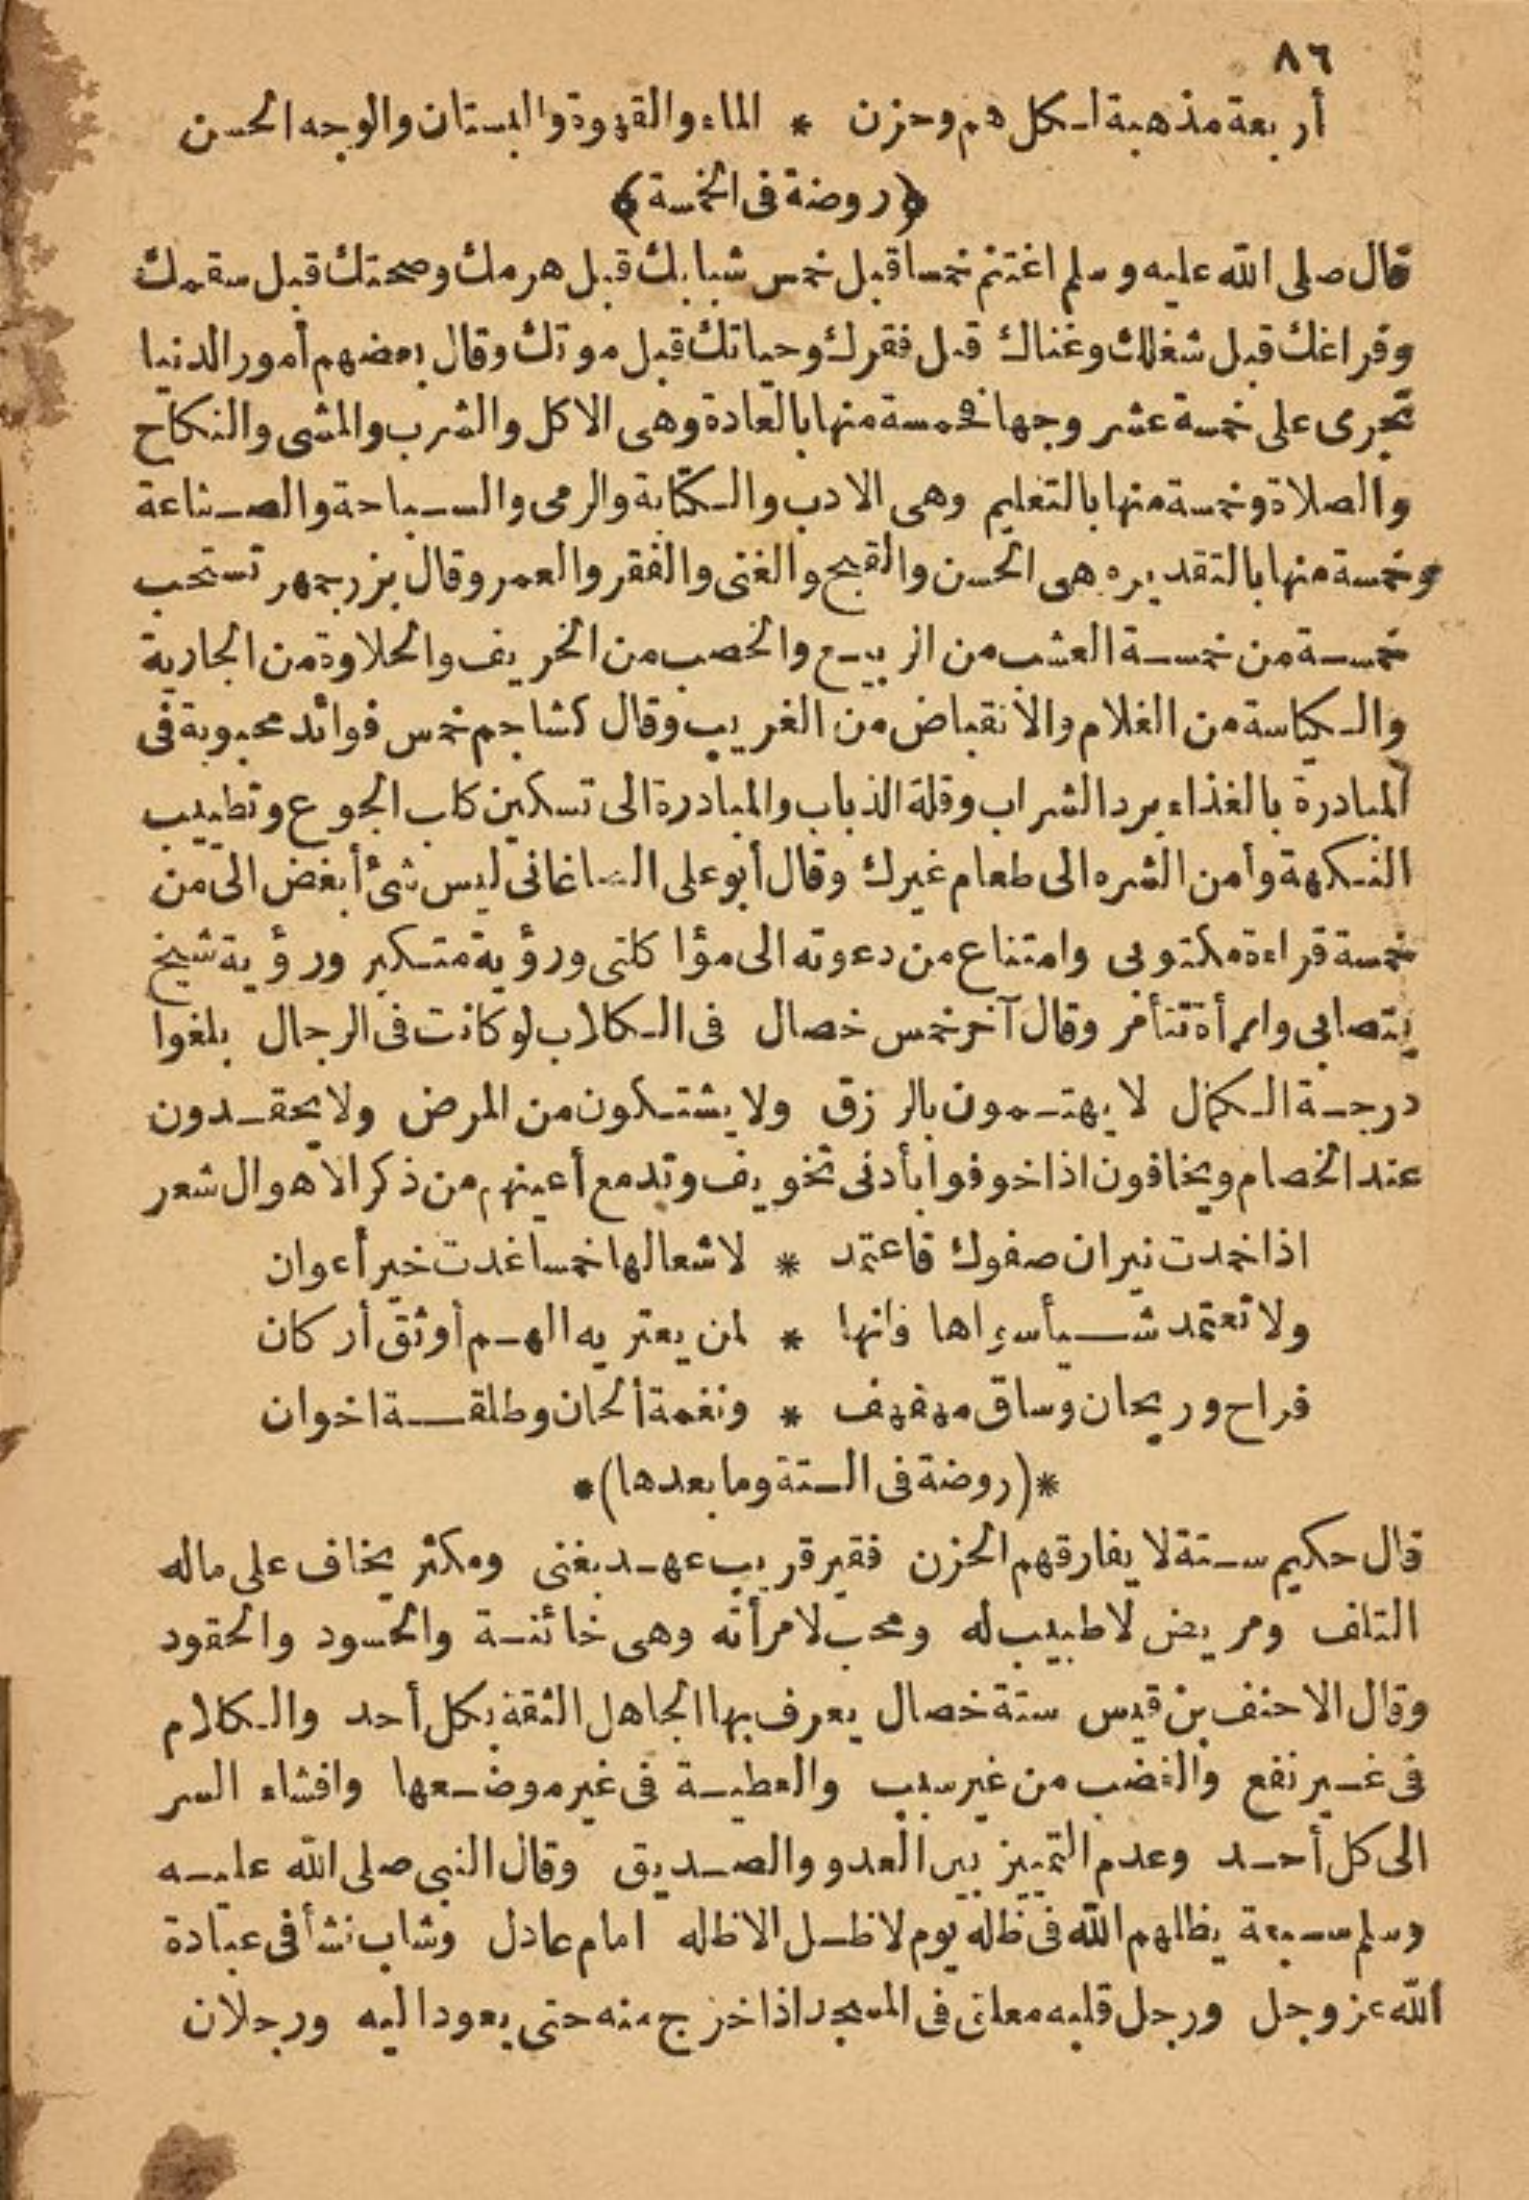 ٨٦
أربعة مذهبة لكل هم وحزن * الماء والقهوة والبستان والوجه الحسن
﴿روضة فى الخمسة﴾
قال صلى الله عليه وسلم اغتنم خمسا قبل خمس شبابك قبل هرمك وصحتك قبل سقمك
وفراغك قبل شغلك وغناك قبل فقرك وحياتك قبل موتك وقال بعضهم أمور الدنيا
تجرى على خمسة عشر وجها فخمسة منها بالعادة وهى الاكل والشرب والمشى والنكاح
والصلاة وخمسة منها بالتعليم وهى الادب والكتابة والرمى والسباحة والصناعة
وخمسة منها بالتقدير وهى الحسن والقبح والغنى والفقر والعمر وقال بزرجمهر تستحب
خمسة من خمسة العشب من الربيع والخصب من الخريف والحلاوة من الجارية
والكياسة من الغلام والانقباض من الغريب وقال كشاجم خمس فوائد محبوبة فى
المبادرة بالغذاء برد الشراب وقلة الذباب والمبادرة الى تسكين كلب الجوع وتطييب
النكهة وأمن الشره الى طعام غيرك وقال أبو على الصاغانى ليس شئ أبغض الى من
خمسة قراءة مكتوبى وامتناع من دعوته الى مؤاكلتى ورؤية متكبر ورؤية شيخ
يتصابى وامرأة تتأمر وقال آخر خمس خصال فى الكلاب لو كانت فى الرجال بلغوا
درجة الكمال لا يهتمون بالرزق ولا يشتكون من المرض ولا يحقدون
عند الخصام ويخافون اذا خوفوا بأدنى تخويف وتدمع أعينهم من ذكر الاهوال شعر
اذا خمدت نيران صفوك فاعتمد * لاشعالها خمسا غدت خير أعوان
ولا تعتمد شيأ سواها فانها * لمن يعتريه الهم أوثق أركان
فراح وريحان وساق مهفهف * ونغمة ألحان وطلقة اخوان
*(روضة فى الستة وما بعدها)*
قال حكيم ستة لا يفارقهم الحزن فقير قريب عهد بغنى ومكثر يخاف على ماله
التلف ومريض لا طبيب له ومحب لامرأته وهى خائنة والحسود والحقود
وقال الاحنف بن قيس ستة خصال يعرف بها الجاهل الثقة بكل أحد والكلام
فى غير نفع والغضب من غير سبب والعطية فى غير موضعها وافشاء السر
الى كل أحد وعدم التمييز بين العدو والصديق وقال النبى صلى الله عليه
وسلم سبعة يظلهم الله فى ظله يوم لا ظل الا ظله امام عادل وشاب نشأ فى عبادة
الله عز وجل ورجل قلبه معلق فى المسجد اذا خرج منه حتى يعود اليه ورجلان